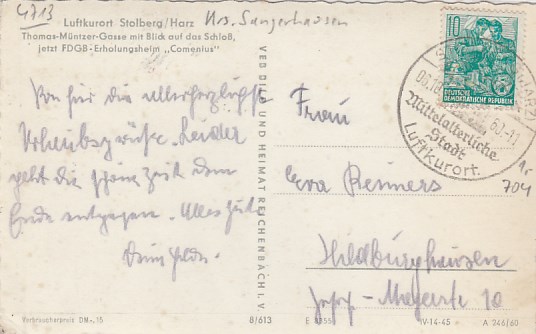 4713
Luftkurort Stolberg/Harz Krs. Sangerhausen
Thomas-Müntzer-Gasse mit Blick auf das Schloß,
jetzt FDGB-Erholungsheim „Comenius"
Von hier die allerherzlichste
Urlaubsgrüße. Leider
geht die schöne Zeit dem
Ende entgegen. Alles Gute
Verbraucherpreis DM -,15
VEB BILD UND HEIMAT REICHENBACH I. V.
8/613
10
DEUTSCHE
DEMOKRATISCHE REPUBLIK
Mittelalterliche
Stadt
Luftkurort
Nr
704
Frau
Eva Renners
Hildburghausen
Meyerstr 10
IV-14-45 A 246/60